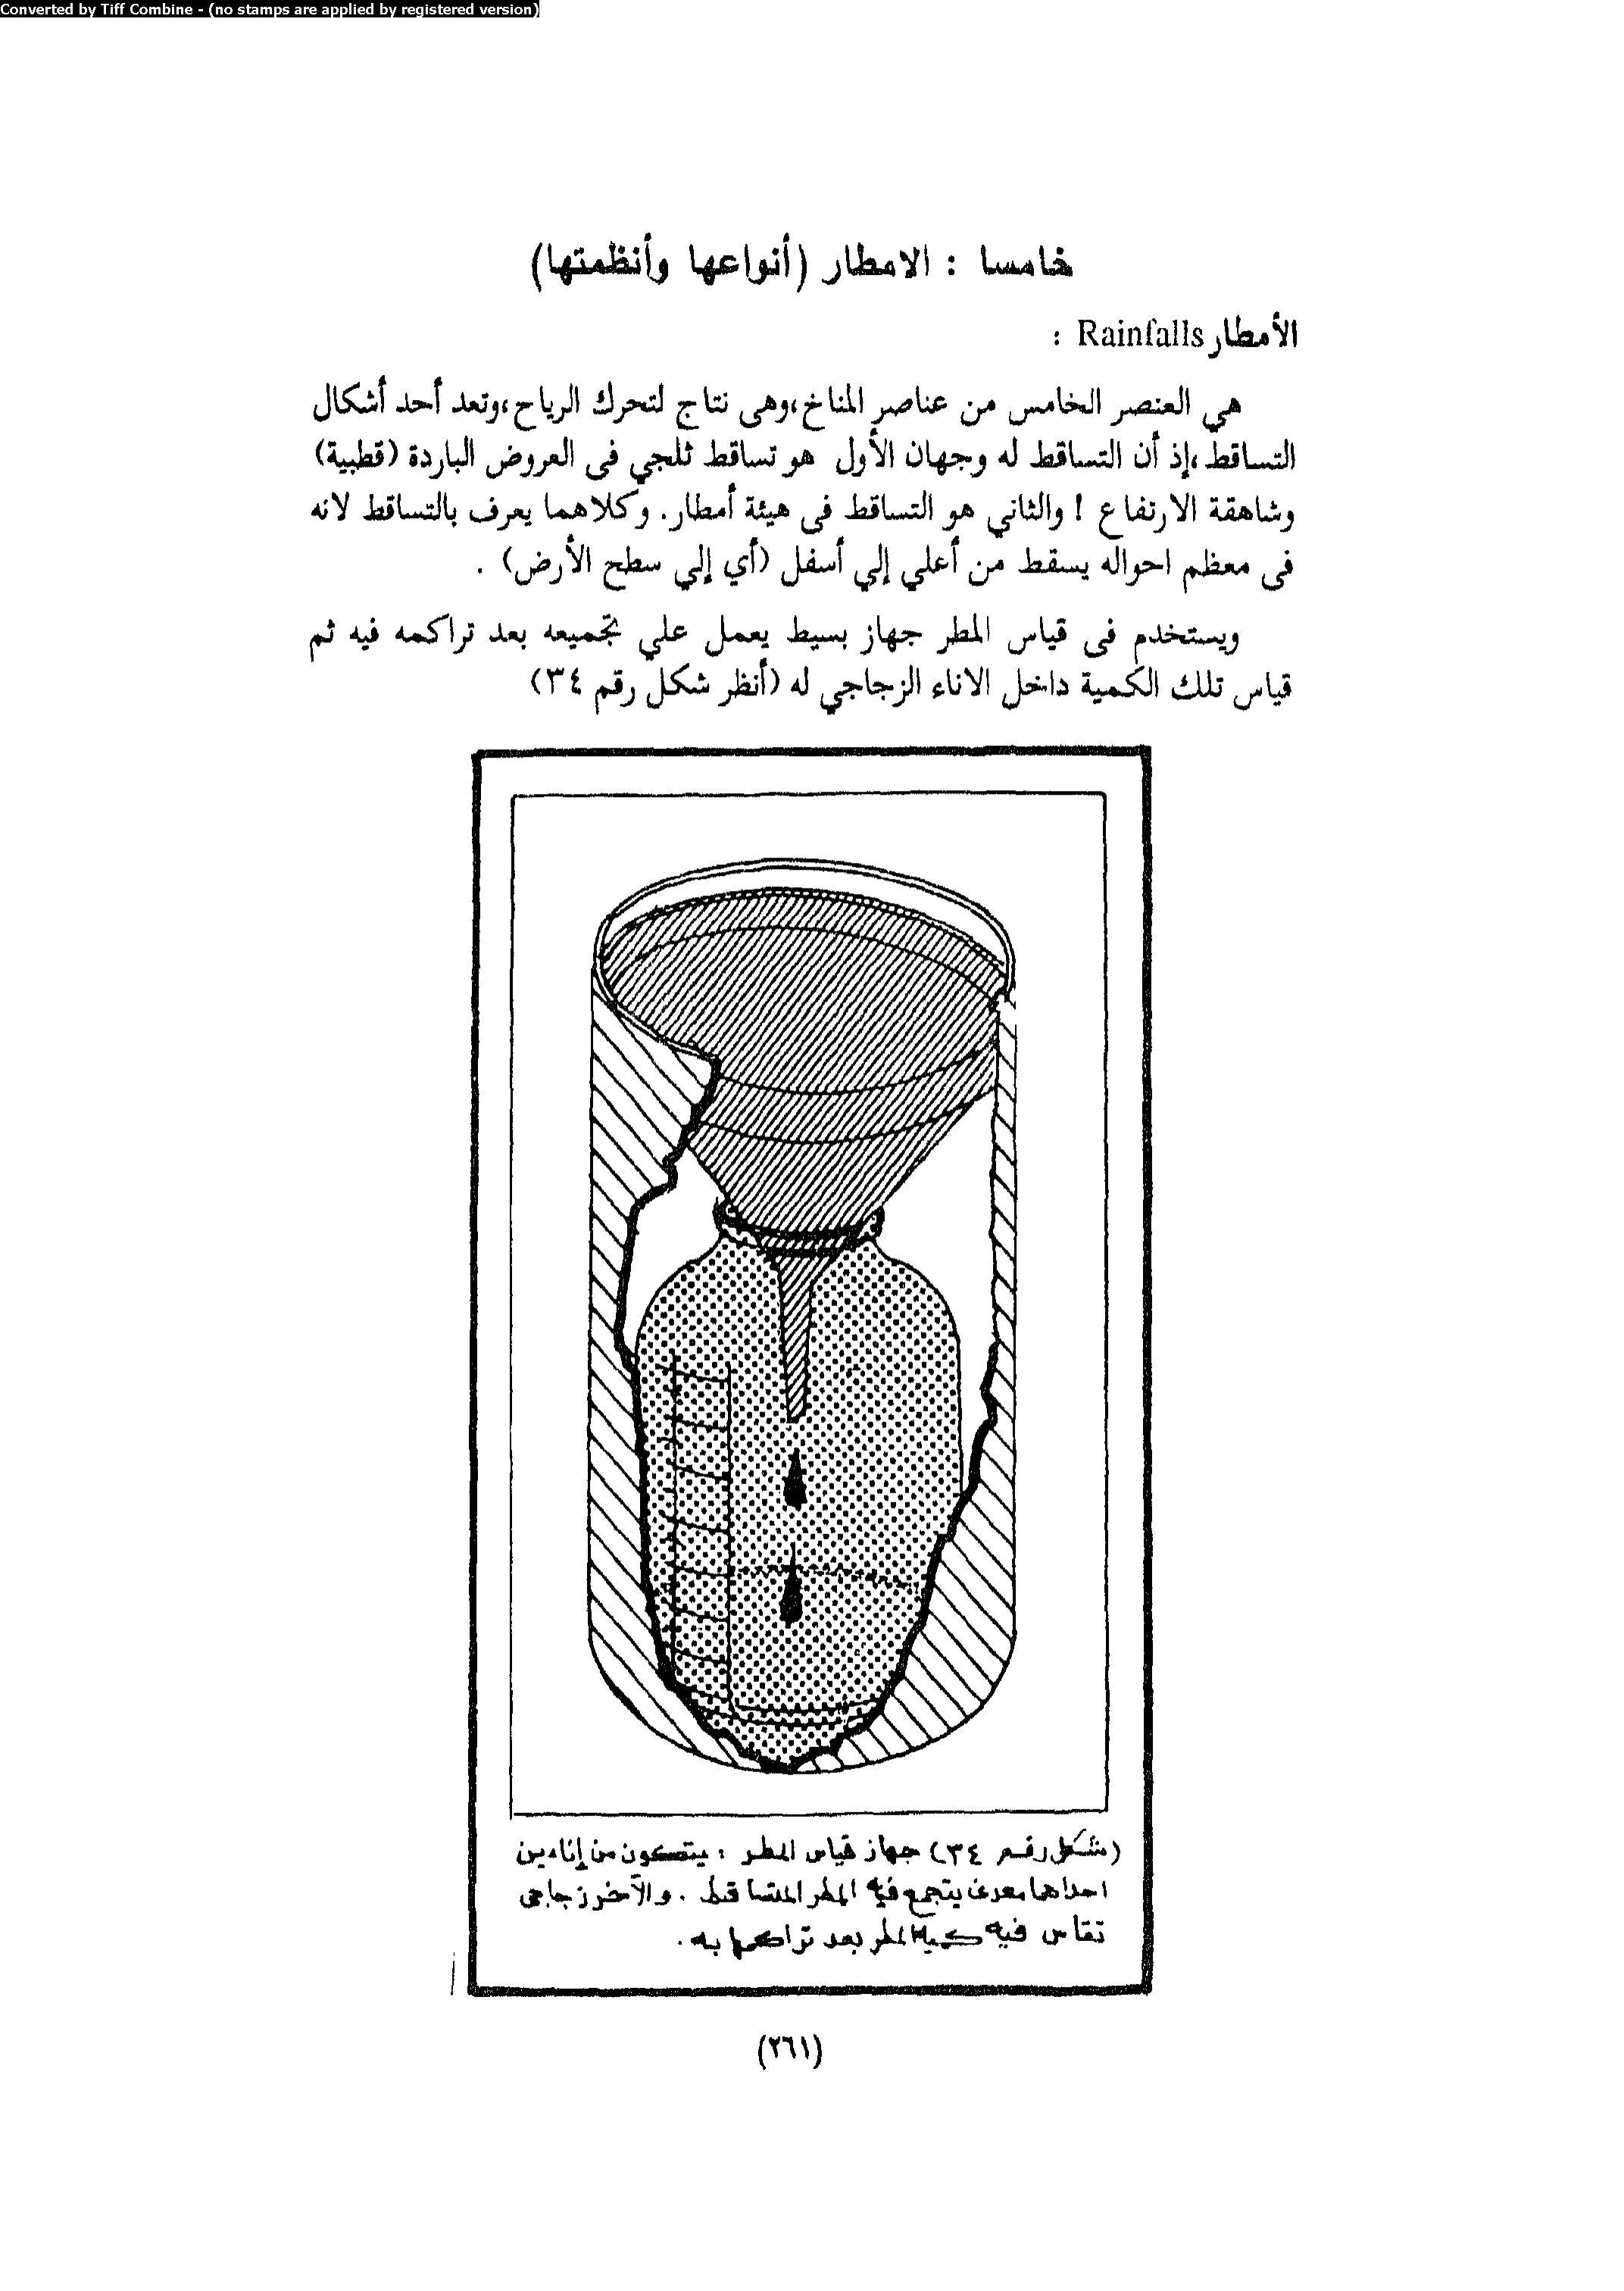 Converted by Tiff Combine - (no stamps are applied by registered version)
خامسا : الامطار (أنواعها وأنظمتها)
الأمطار Rainfalls :
هي العنصر الخامس من عناصر المناخ، وهى نتاج لتحرك الرياح، وتعد أحد أشكال
التساقط، إذ أن التساقط له وجهان الأول هو تساقط ثلجي فى العروض الباردة (قطبية)
وشاهقة الارتفاع ! والثاني هو التساقط فى هيئة أمطار. وكلاهما يعرف بالتساقط لانه
فى معظم احواله يسقط من أعلي إلي أسفل (أي إلي سطح الأرض) .
ويستخدم فى قياس المطر جهاز بسيط يعمل علي تجميعه بعد تراكمه فيه ثم
قياس تلك الكمية داخل الاناء الزجاجي له (أنظر شكل رقم ٣٤)
(شكل رقم ٣٤) جهاز قياس المطر : يتكون من إناءين
احداهما معدنى يتجمع فيه المطر المتساقط . والآخر زجاجى
تقاس فيه كمية المطر بعد تراكمها به .
(٢٦١)